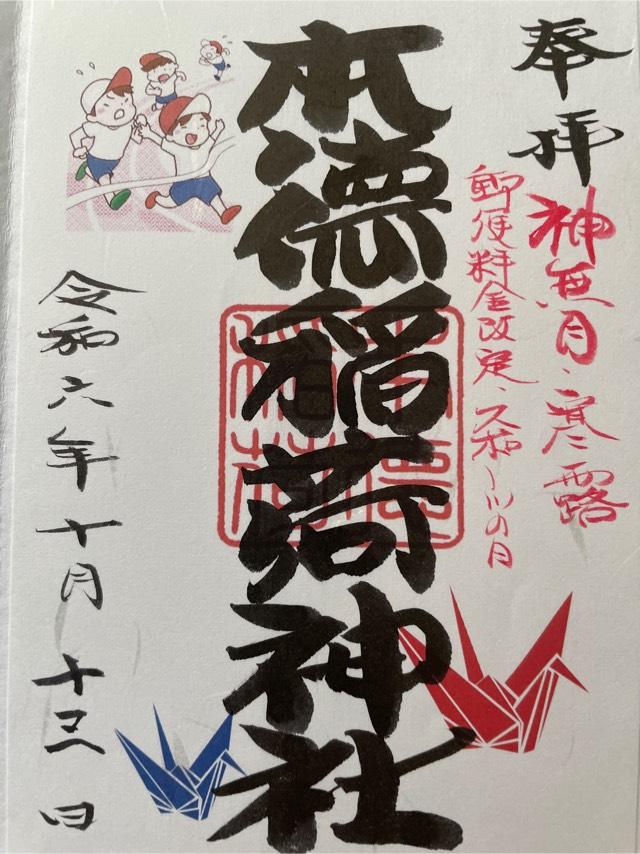 奉拝
神無月・寒露
郵便料金改定・スポーツの日
本徳稲荷神社
令和六年十月十三日